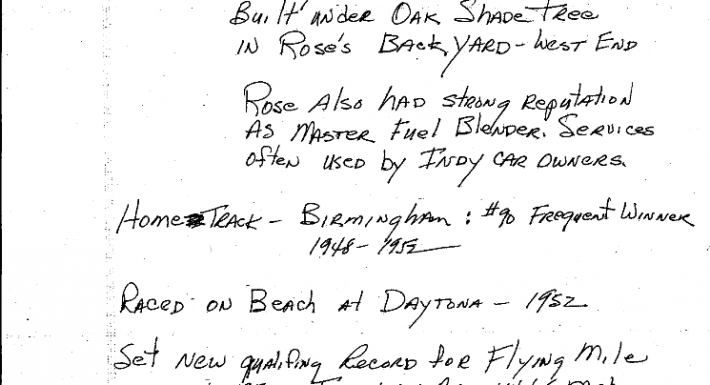 Built under Oak Shade Tree
in Rose's Back Yard - West End
Rose Also had strong reputation
As Master Fuel Blender. Services
often used by Indy car owners.
Home Track - Birmingham : #90 Frequent Winner
1948 - 1952
Raced on Beach at Daytona - 1952
Set New qualifing Record for Flying Mile